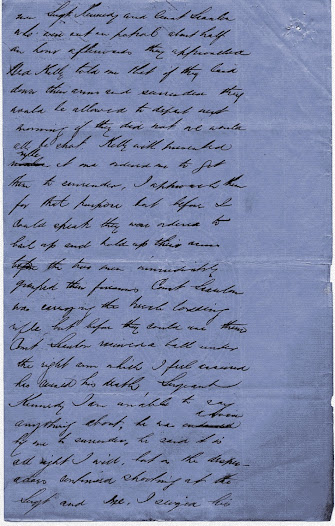 me Sergt Kennedy and Const Scanlan
who were out on patrol about half
an hour afterwards they approached
Ned Kelly told me that if they laid
down their arms and surrender they
would be allowed to depart next
morning if they did not we would
all be shot Kelly with presented
rifle at me ordered me to get
them to surrender, I approached them
for that purpose but before I
could speak they were ordered to
bail up and hold up their arms
the two men immediately
grasped their firearms Const Scanlan
was carrying the breech loading
rifle but before they could use them
Const Scanlan received a ball under
the right arm which I feel assured
has caused his death, Sergeant
Kennedy I am unable to say
anything about, he was
by me to surrender, he said it is
all right I will, but as the desper-
adoes continued shooting at the
Sergt and me, I seized his